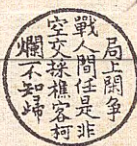 局上閑争
戰人間任是非
空交採樵客柯
爛不知歸